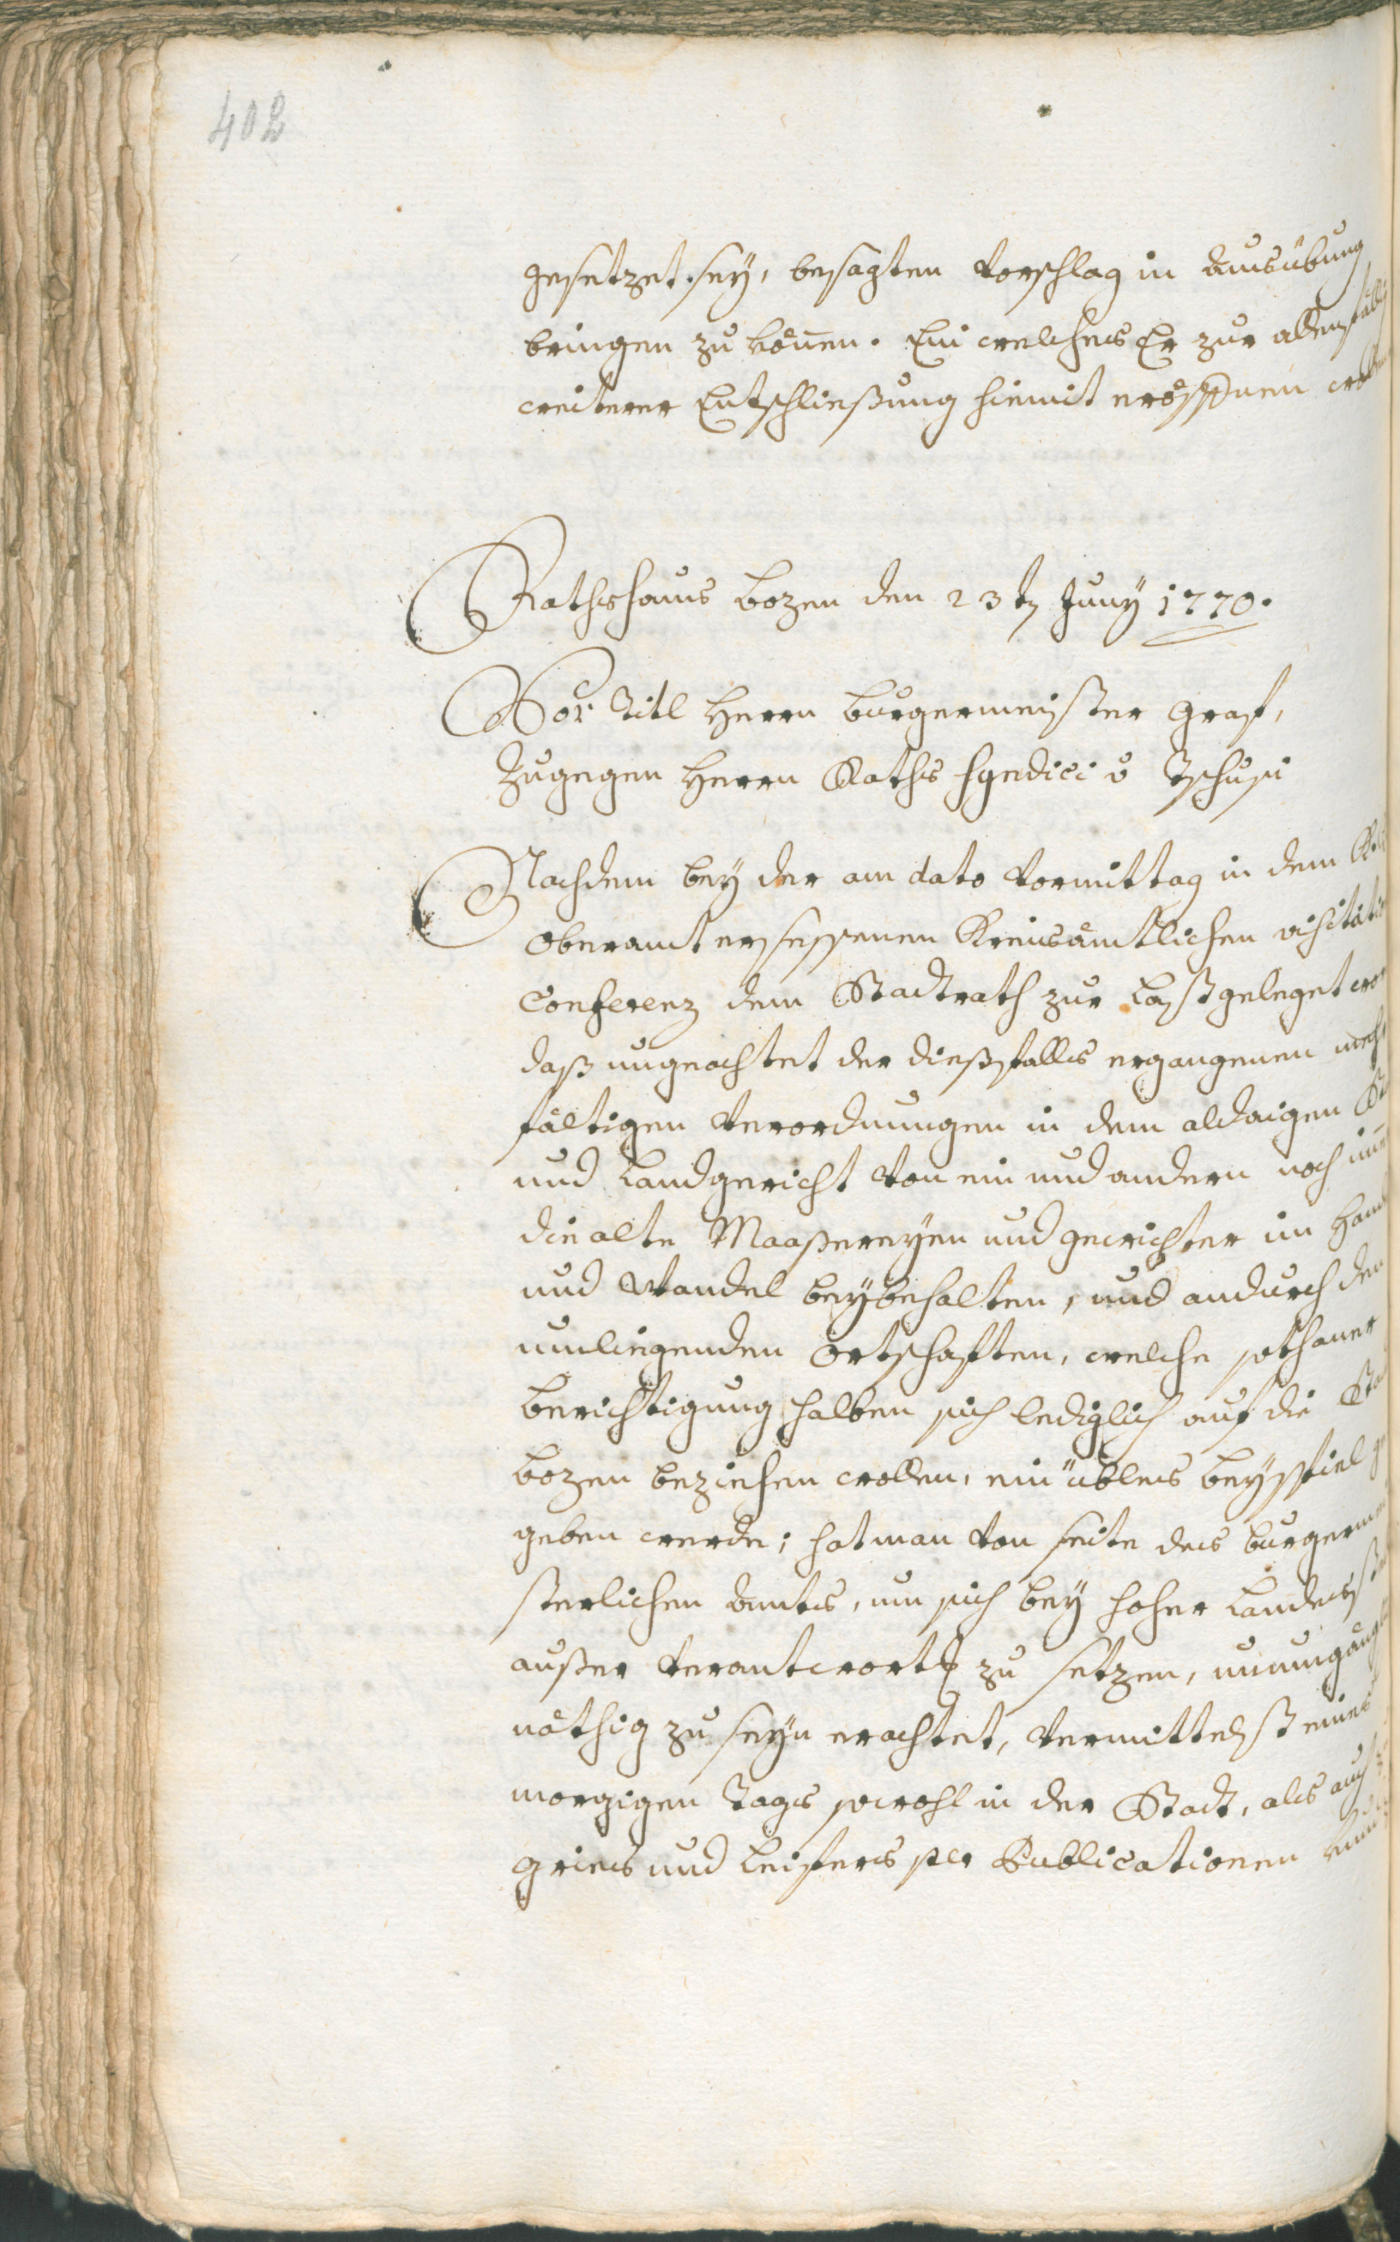 402
gesetzet sey, besagten Vorschlag in Ausübung
bringen zu können. Ein welches Er zur allenfällig
weiterer Entschließung hiemit eröffnen
Rathshaus Bozen den 23tn Juny 1770.
Vor Titl Herrn Burgermeister Graf,
Zugegen Herrn Raths Syndici v Tschusi
Nachdem bey der am dato Vormittag in dem
Oberamt ersessenen Kreisämtlichen visitations
Conferenz dem Stadtrath zur Last geleget
daß ungeachtet der dießfalls ergangenen
fältigen Verordnungen in dem aldaigen
und Landgericht von ein und andern noch
die alte Maaßereyen und gewichter im
und Wandel beybehalten, und andurch den
umliegenden Ortschaften, welche sothaner
berichtigung halben sich lediglich auf die
Bozen beziehen wollen, ein übles beyspiel
geben werde; hat man von seite des
sterlichen Amts, um sich bey hoher
außer Verantwortg zu setzen,
nöthig zu seyn erachtet, vermittelst eines
morgigen Tags sowohl in der Stadt, als auch
Gries und Leifers per Publicationem